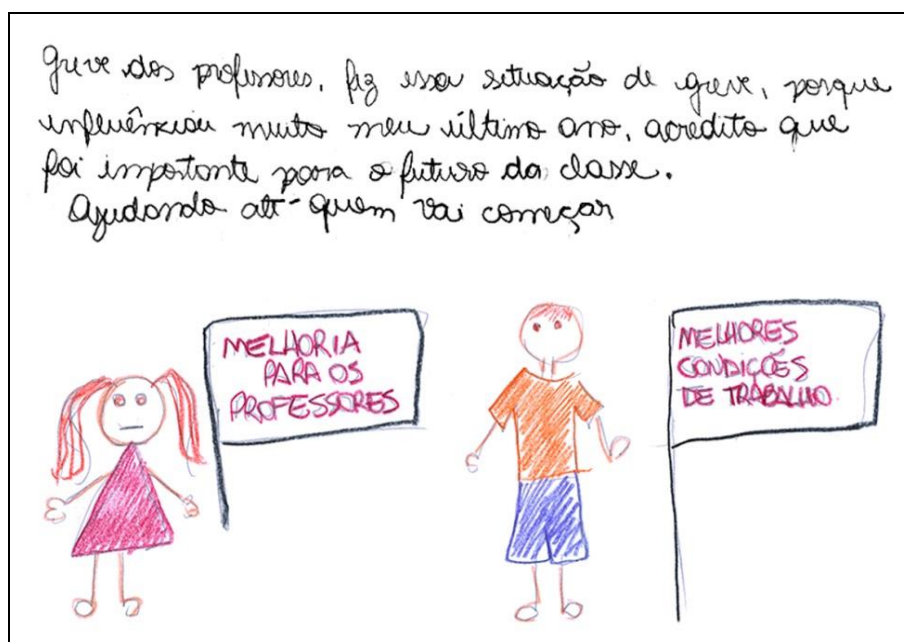 Greve dos professores. fiz essa situação de greve, porque
influênciou muito meu último ano, acredito que
foi importante para o futuro da classe.
Ajudando até quem vai começar
MELHORIA
PARA OS
PROFESSORES
MELHORES
CONDIÇÕES
DE TRABALHO.